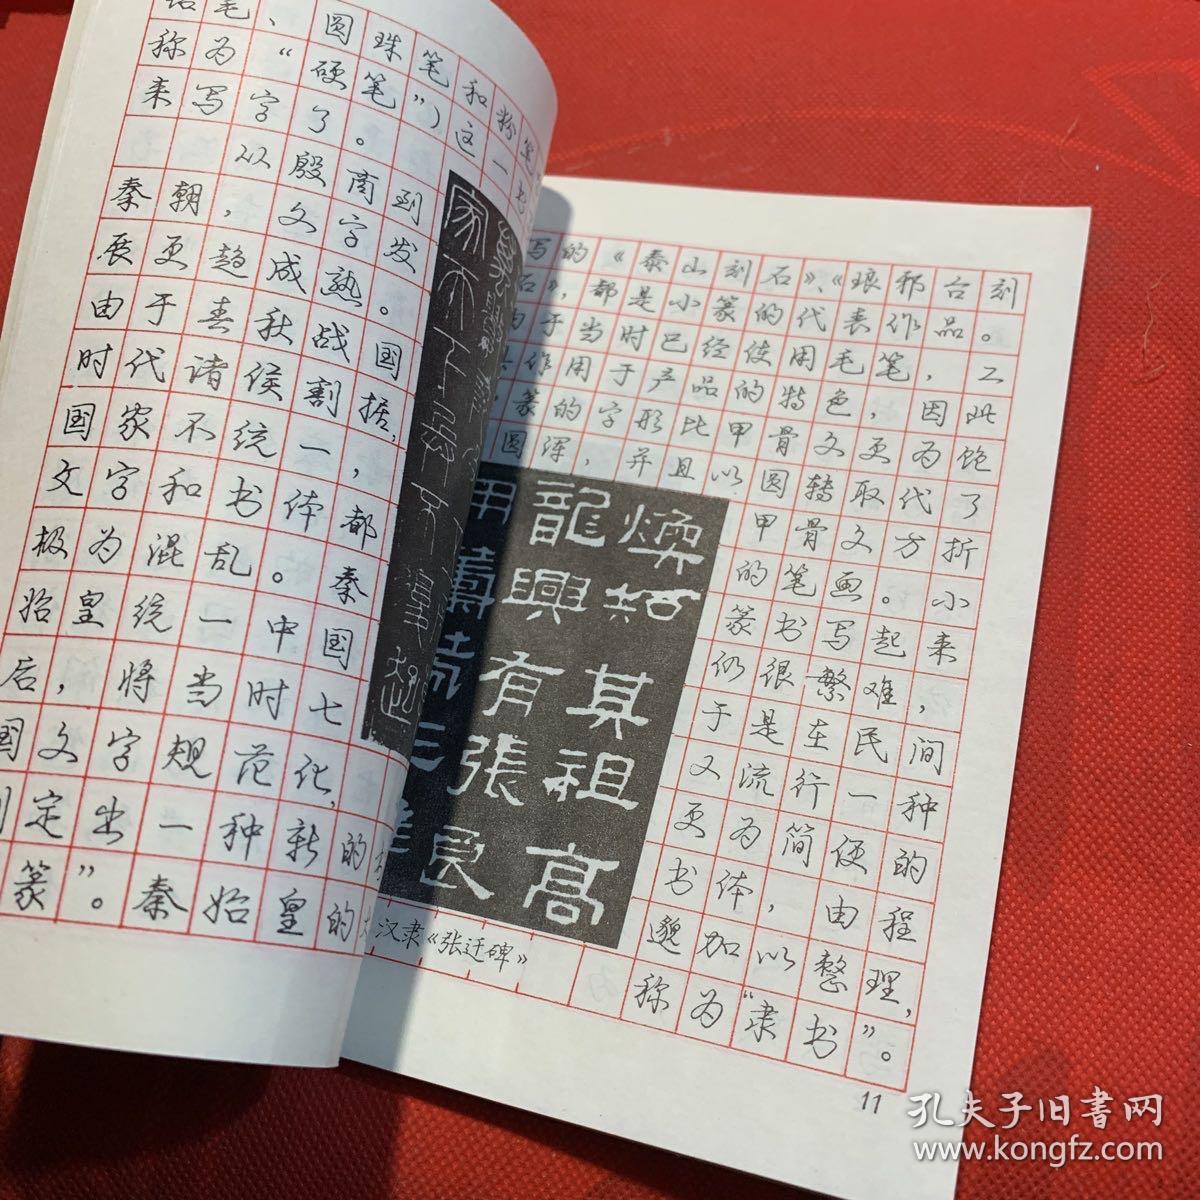 圆珠笔和粉笔
称为“硬笔”)这一
来写字了。
从殷商到
秦朝，文字发
展更趋成熟。
由于春秋战国
时代诸侯割据，
国家不统一，
文字和书体都
极为混乱。秦
始皇统一中国
后，将当时七
国文字规范化，
定出一种新的
篆”。秦始皇的
写的《泰山刻石》、《琅邪台刻
石》，都是小篆的代表作品。
由于当时已经使用毛笔，工
作用于产品的特色，因此
篆的字形比甲骨文更为饱
圆浑，并且以圆转取代了
甲骨文方折
的笔画。小
篆书写起来
仍很繁难，
于是在民间
又流行一种
更为简便的
书体，由程
邈加以整理，
称为“隶书”。
焕知其祖高
龍興有張良
用籌策
汉隶《张迁碑》
11
孔夫子旧書网
www.kongfz.com